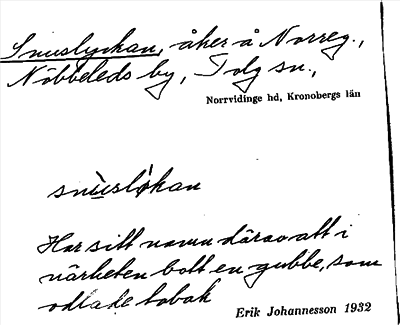 Snuslyckan, åker å Norreg.,
Nöbbeleds by, Tolg sn.,
Norrvidinge hd, Kronobergs län
snùslỳkan
Har sitt namn därav att i
närheten bott en gubbe, som
odlade tobak
Erik Johannesson 1932